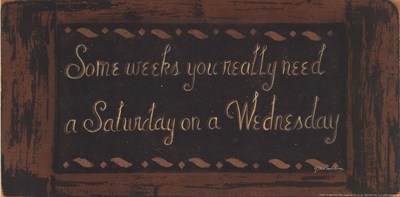 Some weeks you really need
a Saturday on a Wednesday